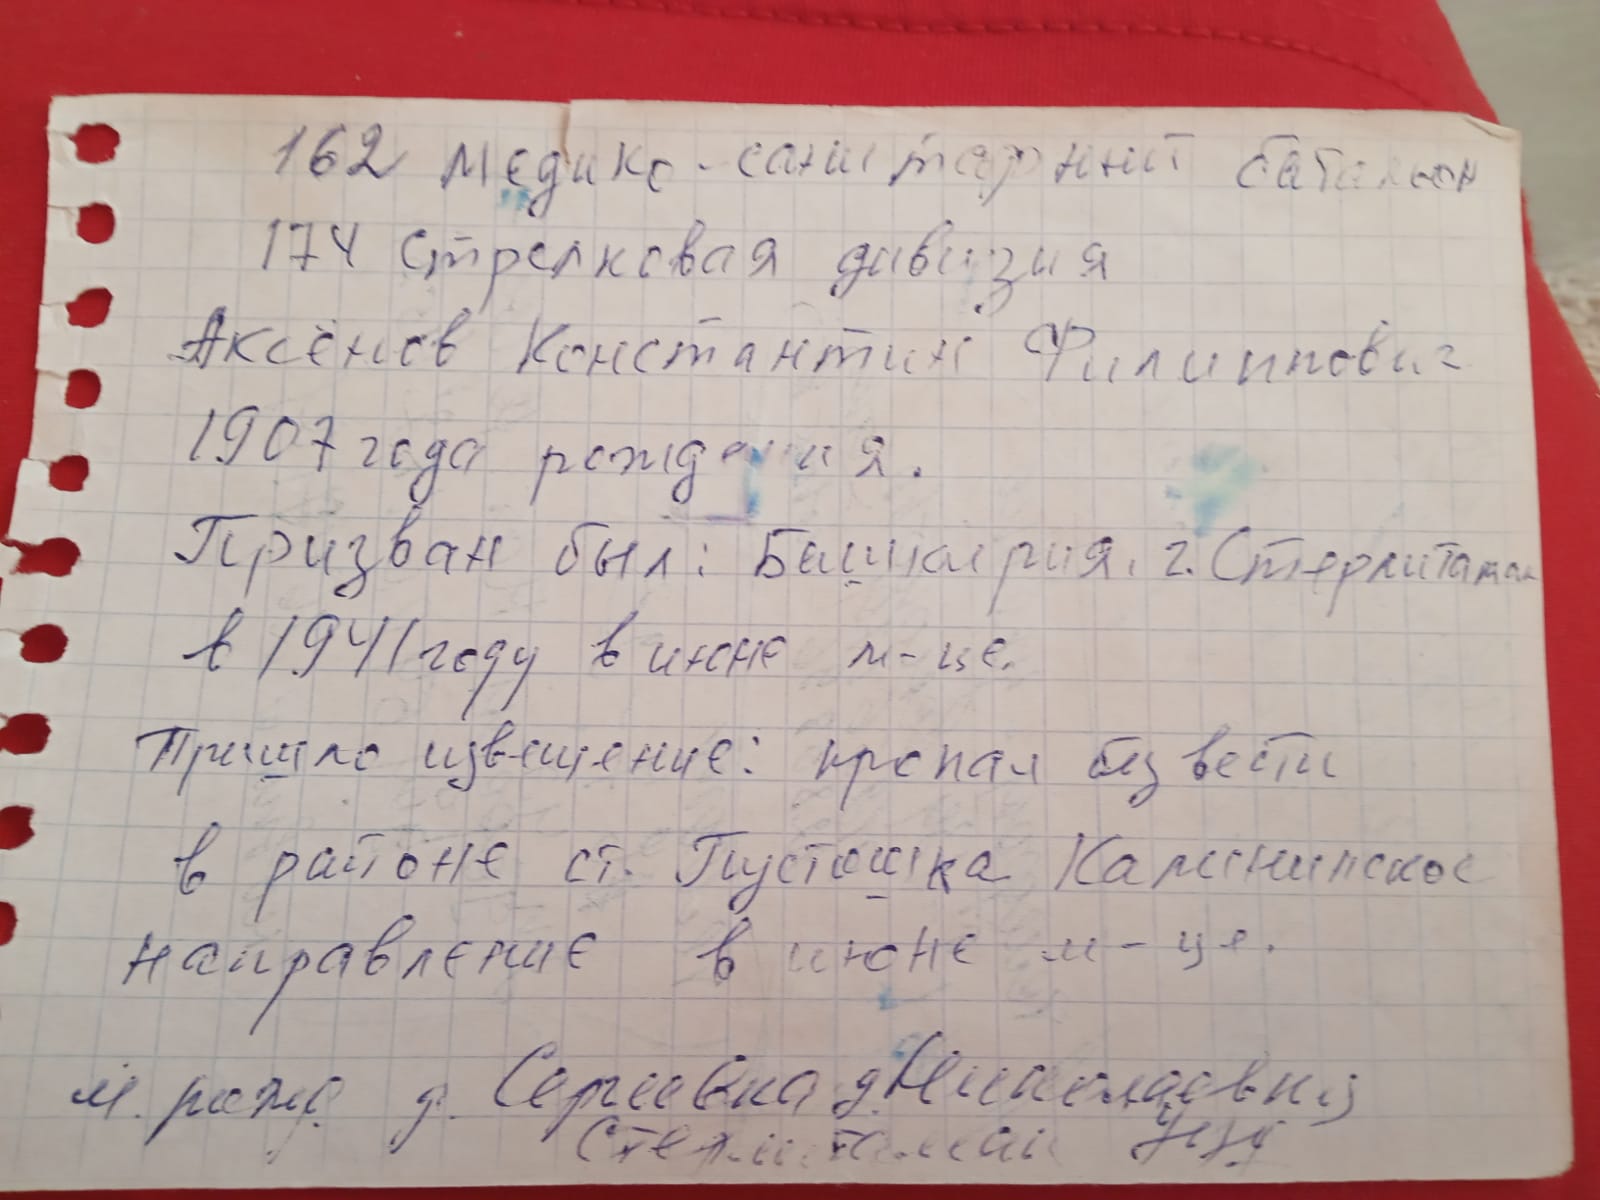 162 медико-санитарный батальон
174 стрелковая дивизия
Аксёнов Константин Филиппович
1907 года рождения.
Призван был: Башкирия, г. Стерлитамак
в 1941 году в июне м-це.
Пришло извещение: пропал без вести
в районе ст. Пустошка Калининское
направление в июне м-це.
м. рожд. д. Сергиевка д. Николаевка
Стерлитамак